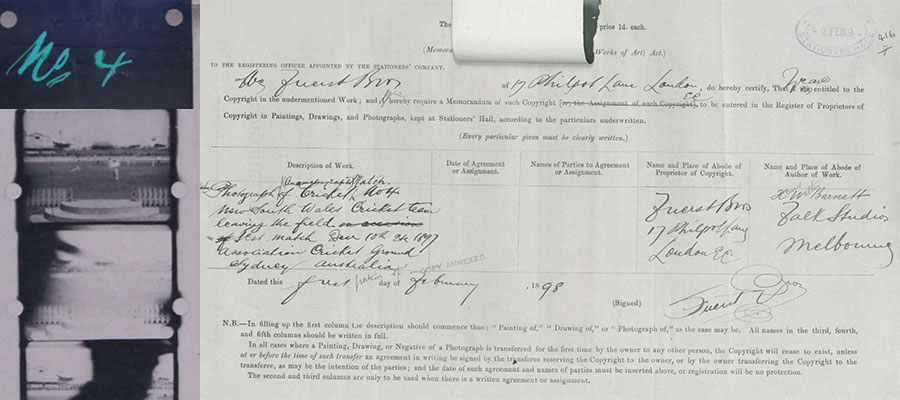 No 4
The
price 1d. each.
2 FEB.9
STATIONERS' HALL
416
7
(Memora
Works of Art) Act.)
TO THE REGISTERING OFFICER APPOINTED BY THE STATIONERS' COMPANY.
We Fuerst Bros of 17 Philpot Lane London EC, do hereby certify, That We are entitled to the
Copyright in the undermentioned Work; and hereby require a Memorandum of such Copyright (or, the Assignment of such Copyright), to be entered in the Register of Proprietors of
Copyright in Paintings, Drawings, and Photographs, kept at Stationers' Hall, according to the particulars underwritten.
(Every particular given must be clearly written.)
Description of Work.
Date of Agreement or Assignment.
Names of Parties to Agreement or Assignment.
Name and Place of Abode of Proprietor of Copyright.
Name and Place of Abode of Author of Work.
Photograph of Cricket No 4
New South Wales Cricket team
leaving the field
Test match Decr 10th 24 1897
Association Cricket Ground
Sydney Australia
COPY ANNEXED
Fuerst Bros
17 Philpot Lane
London E.C.
H W Barnett
Falk Studios
Melbourne
Dated this first day of February 1898
(Signed) Fuerst Bros
N.B.—In filling up the first column the description should commence thus: "Painting of," "Drawing of," or "Photograph of," as the case may be. All names in the third, fourth,
and fifth columns should be written in full.
In all cases where a Painting, Drawing, or Negative of a Photograph is transferred for the first time by the owner to any other person, the Copyright will cease to exist, unless
at or before the time of such transfer an agreement in writing be signed by the transferee reserving the Copyright to the owner, or by the owner transferring the Copyright to the
transferee, as may be the intention of the parties; and the date of such agreement and names of parties must be inserted above, or registration will be no protection.
The second and third columns are only to be used when there is a written agreement or assignment.